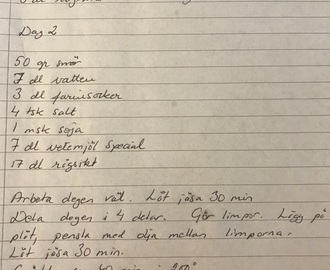 Dag 2
50 gr smör
7 dl vatten
3 dl farinsocker
4 tsk salt
1 msk soja
7 dl vetemjöl special
17 dl rågsikt
Arbeta degen väl. Låt jäsa 30 min
Dela degen i 4 delar. Gör limpor. Lägg på
plåt, pensla med olja mellan limporna.
Låt jäsa 30 min.